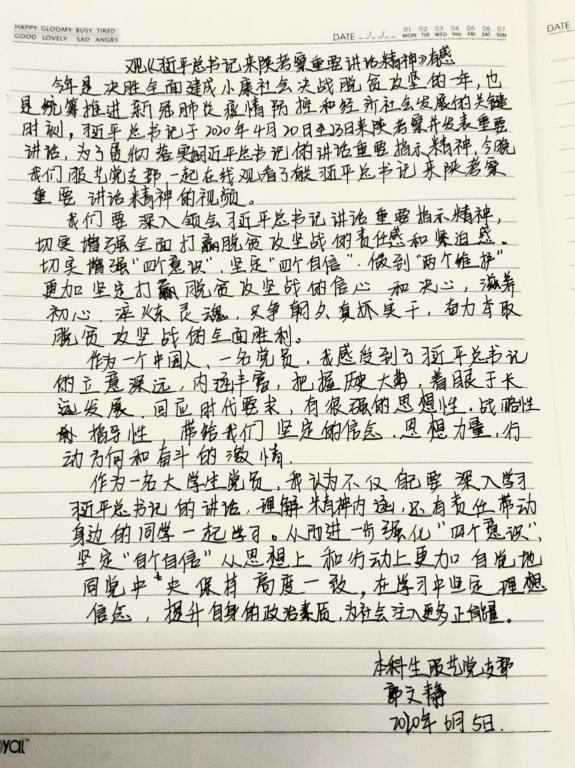 HAPPY GLOOMY BUSY TIRED
GOOD LOVELY SAD ANGRY
DATE
01 02 03 04 05 06 07
MON TUE WED THU FRI SAT SUN
DATE
观《习近平总书记来陕考察重要讲话精神》有感
今年是决胜全面建成小康社会决战脱贫攻坚的一年,也
是统筹推进新冠肺炎疫情防控和经济社会发展的关键
时刻,习近平总书记于2020年4月20日至23日来陕考察并发表重要
讲话,为了贯彻落实习近平总书记的讲话重要指示精神,今晚
我们服艺党支部一起在线观看了 习近平总书记来陕考察
重要讲话精神的视频。
我们要深入领会习近平总书记讲话重要指示精神,
切实增强全面打赢脱贫攻坚战的责任感和紧迫感。
切实增强“四个意识”.坚定“四个自信”.做到“两个维护”
更加坚定打赢脱贫攻坚战的信心和决心,滋养
初心,淬炼灵魂,只争朝夕真抓实干,奋力夺取
脱贫攻坚战的全面胜利。
作为一个中国人,一名党员,我感受到了习近平总书记
的立意深远,内涵丰富,把握 大势,着眼于长
远发展.回应时代要求,有很强的思想性.战略性
指导性,带给我们坚定的信念.思想力量,行
动方向和奋斗的激情.
作为一名大学生党员,我认为不仅自己要深入学习
习近平总书记的讲话,理解精神内涵,还有责任带动
身边的同学一起学习。从而进一步强化“四个意识”,
坚定“ 个自信”从思想上和行动上更加自觉地
同党中央保持高度一致,在学习中坚定理想
信念,提升自身的政治素质,为社会注入更多正能量。
本科生服艺党支部
郭文静
2020年6月5日.
yal™